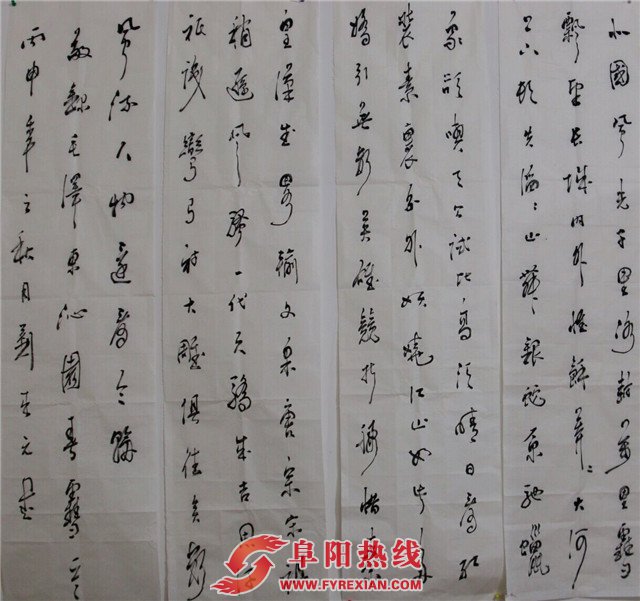 北國風光千里冰封萬里雪
飄望長城內外惟餘莽々大河
上下頓失滔々山舞銀蛇原馳蠟
象欲與天公試比高須晴日看紅
裝素裹分外妖嬈江山如此多
嬌引無數英雄競折腰惜秦
皇漢武略輸文采唐宗宋祖
稍遜風騷一代天驕成吉思
祇識彎弓射大雕俱往矣數
風流人物還看今朝
敬錄毛澤東沁園春雪
丙申年之秋月
阜阳热线
WWW.FYREXIAN.COM